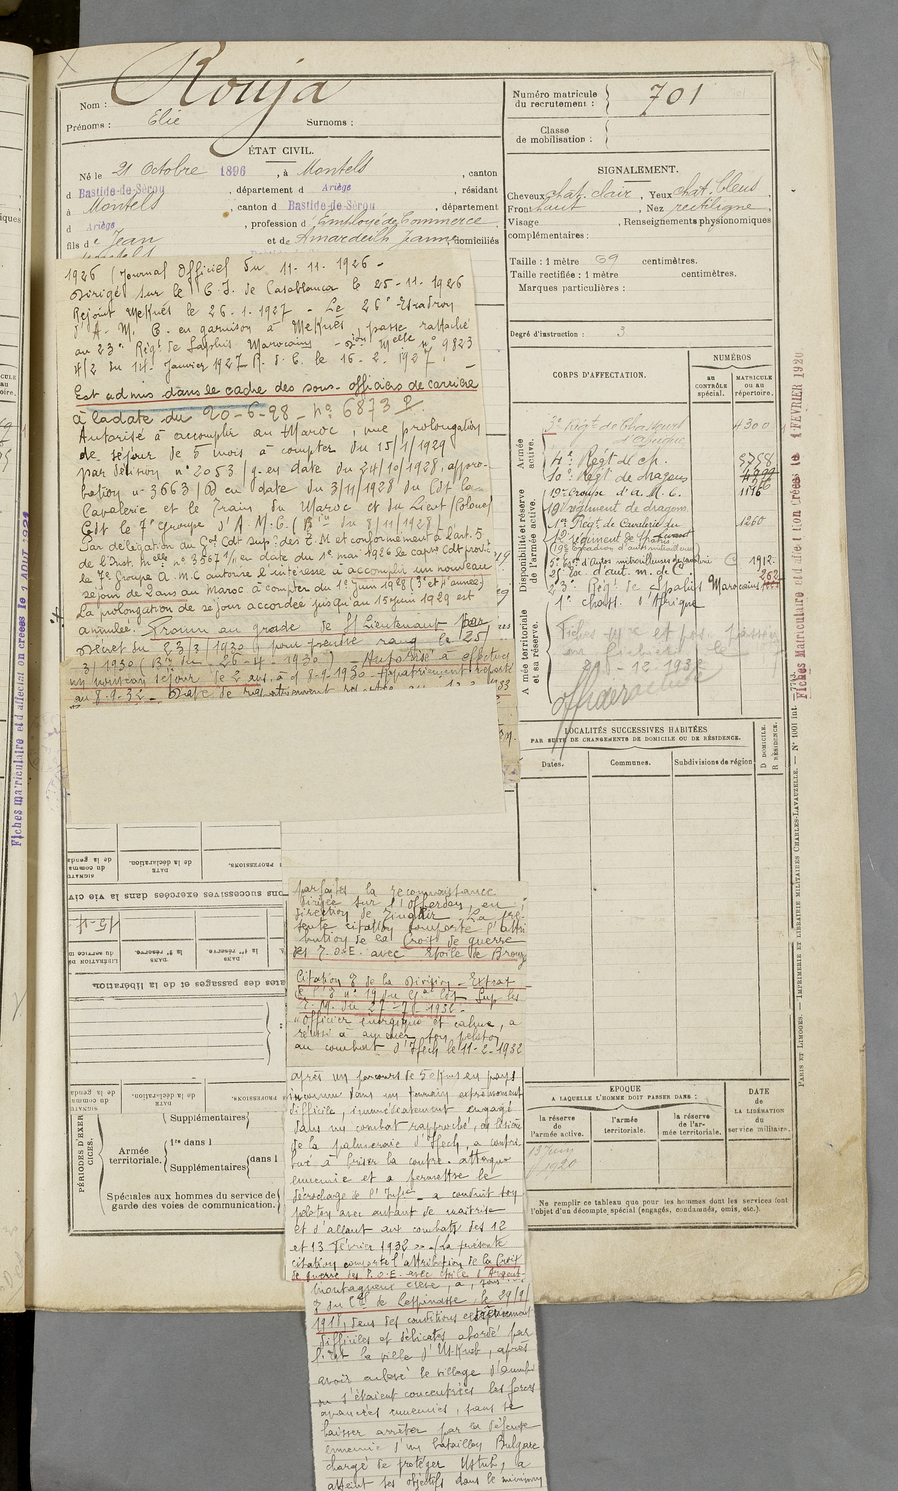 Nom : Rouja
Prénoms : Elie Surnoms :
Numéro matricule du recrutement : 701
Classe de mobilisation :
ÉTAT CIVIL.
Né le 21 Octobre 1896, à Montels, canton
d Bastide-de-Sérou, département d Ariège, résidant
à Montels, canton d Bastide-de-Sérou, département
d Ariège, profession d'Employé de Commerce
fils de Jean et de Amardeilh Jeanne domiciliés
SIGNALEMENT.
Cheveux chat. clair, Yeux chat. bleus,
Front haut, Nez rectiligne,
Visage , Renseignements physionomiques
complémentaires :
Taille : 1 mètre 69 centimètres.
Taille rectifiée : 1 mètre centimètres.
Marques particulières :
Degré d'instruction : 3
1926 (Journal Officiel du 11-11-1926 -
Dirigé sur le C. S. de Casablanca le 25-11-1926
Rejoint Meknès le 26-1-1927 - Le 26e Escadron
d'A. M. C. en garnison à Meknès, passe rattaché
au 23e Régt de Spahis Marocains - Mlle n° 9823
4/2 du 14 Janvier 1927 R. d. C. le 16-2-1927.
Est admis dans le cadre des sous-officiers de carrière
à la date du 20-6-28 - N° 6873 P.
Autorisé à accomplir au Maroc, une prolongation
de séjour de 5 mois à compter du 15/1/1929
par décision n° 2053/9 en date du 24/10/1928, appro-
bation n° 3663/ en date du 3/11/1928 du Cdt la
Cavalerie et le Train du Maroc et du Lieut Colonel
Cdt le 7e Groupe d'A. M. C. ( du 8/11/1928)
Par délégation du Gal Cdt Sup. des T. M et conformément à l'art. 5
de l'Inst. Mielle n° 3567 1/1 en date du 1er mai 1926 le capne Cdt provre
le 7e Groupe A. M. C autorise l'intéressé à accomplir un nouveau
séjour de 2 ans au Maroc à compter du 1er Juin 1928 (3e et 4e années)
La prolongation de séjour accordée jusqu'au 15 Juin 1929 est
annulée. Promu au grade de St Lieutenant par
Décret du 23/3/1930 pour prendre rang le 25/
3/1930 ( du 26-4-1930) - Autorisé à effectuer
un nouveau séjour de 2 ans à cr 8-9-1930 - Rapatriement reporté
au 8-9-32 - Date de rapatriement
CORPS D'AFFECTATION.
NUMÉROS
AU CONTRÔLE spécial.
MATRICULE ou au répertoire.
Armée active.
Disponibilité et réserve de l'armée active.
Armée territoriale et sa réserve.
3e Régt de Chasseurs d'Afrique 4300
4e Régt de ch. 8758
10e Régt de dragons
19e Groupe d'A. M. C. 1176
19e régiment de dragons
1er Régt de Cavalerie du 1260
12e régiment de
5e Esc. d'Autos mitrailleuses de cavalerie C 1912
26 Esc. d'aut. m. de C 252
23e Rég. de spahis Marocains
1er chass. d'Afrique
Fiches Mle et pos. passées
en fichier le
20-12-1932
LOCALITÉS SUCCESSIVES HABITÉES
PAR SUITE DE CHANGEMENTS DE DOMICILE OU DE RÉSIDENCE.
Dates. Communes. Subdivisions de région
D DOMICILE. R RÉSIDENCE.
EPOQUE
A LAQUELLE L'HOMME DOIT PASSER DANS :
la réserve de l'armée active.
l'armée territoriale.
la réserve de l'armée territoriale.
DATE de LA LIBÉRATION du service militaire.
13 Juin 1920
Ne remplir ce tableau que pour les hommes dont les services font
l'objet d'un décompte spécial (engagés, condamnés, omis, etc.).
PARIS ET LIMOGES. — IMPRIMERIE ET LIBRAIRIE MILITAIRES CHARLES-LAVAUZELLE. — N° 1001 int.
Fiches Matriculaire et d'affectation créées le 1 FÉVRIER 1920.
Fiches matriculaire et d'affectation créées le 1 AOUT 1921
PROFESSIONS
DATE de la déclaration.
ons successives exercées dans la vie civ
15-4
DANS la 1re réserve.
DANS la 2e réserve.
LIBÉRATION DU service m
ates des passages et de la libération.
DATE de la déclaration.
PÉRIODES D'EXERCICES.
Supplémentaires
Armée territoriale.
1re dans l
Supplémentaires dans l
Spéciales aux hommes du service de
garde des voies de communication.
parfaites la reconnaissance
dirigée sur l'Offerdou, en
direction de Zinguir. La pré-
sente citation comporte l'attri
bution de la Croix de guerre
des T.O.E. avec Etoile de Bronze
Citation à l' de la Division - Extrait
de l' n° 19 du Gal Cdt Sup. les
T. M. du 27-7-1932.
"Officier énergique et calme, a
réussi à amener son peloton
au combat d'Ifech le 11-2-1932
après un parcours de 5 ekms en pays
inconnu dans un terrain extrêmement
difficile, immédiatement engagé
dans un combat rapproché, en lisière
de la palmeraie d'Ifech, a contri
bué à briser la contre-attaque
ennemie et a permettre le
décrochage de l'Infie - a conduit son
peloton avec autant de maîtrise
et d'allant aux combats des 12
et 13 février 1932 » - La présente
citation comporte l'attribution de la Croix
de guerre des T.O.E. avec étoile d'Argent
montagneux élevé, a, sous
du Cel de Lespinasse, le 29/9/
1918, dans des conditions extrêmement
difficiles et délicates abordé par
l'Est la ville d'Uskub, après
avoir enlevé le village d'
où s'étaient concentrées les forces
avancées ennemies, sans se
laisser arrêter par la défense
ennemie d'un bataillon Bulgare
chargé de protéger Uskub, a
atteint ses objectifs dans le minimum